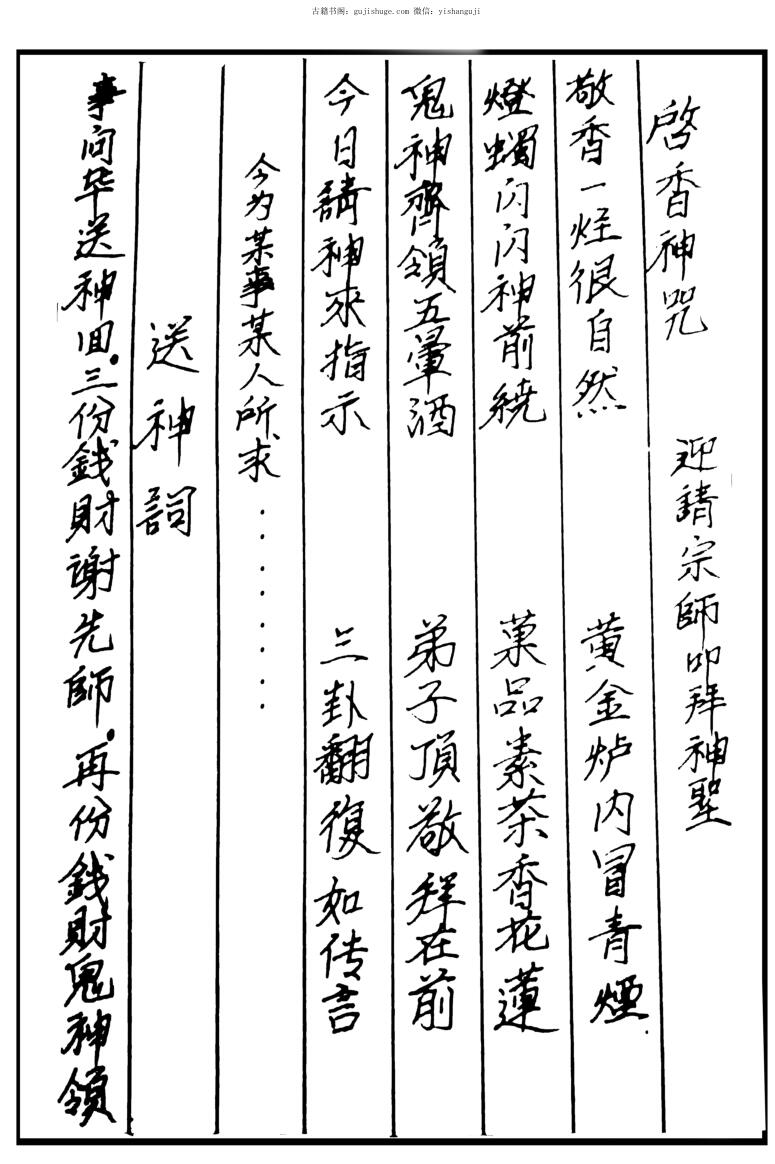 古籍书阁：gujishuge.com 微信：yishanguji
啓香神咒　迎請宗師叩拜神聖
敬香一炷很自然　黄金炉内冒青煙
燈蠋闪闪神前繞　菓品素茶香花蓮
鬼神齊領五暈酒　弟子頂敬拜在前
今日請神來指示　三卦翻復如传言
今为某事某人所求·········
送神詞
事问毕送神回。三份錢財謝先師。再份錢財鬼神領